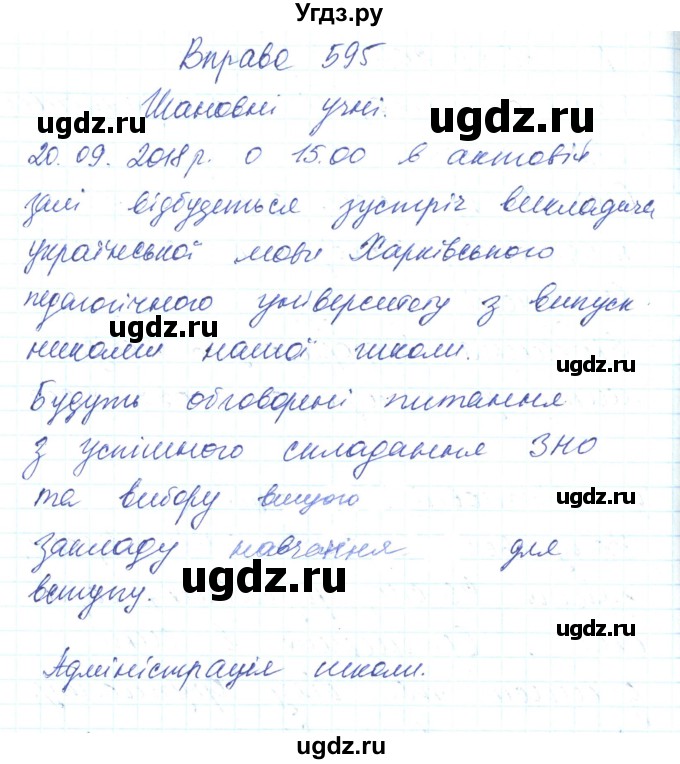 Угдз.ру
Вправа 595
Шановні учні.
ugdz.ru
ugdz.ru
20.09.2018р. о 15.00 в актовій
залі відбудеться зустріч викладача
української мови Харківського
педагогічного університету з випуск
ugdz.ru
никами нашої школи.
ugdz.ru
Будуть обговорені питання
з успішного складання ЗНО
та вибору вищого
ugdz.ru
закладу навчання для
ugdz.ru
вступу.
ugdz.ru
Адміністрація школи.
ugdz.ru